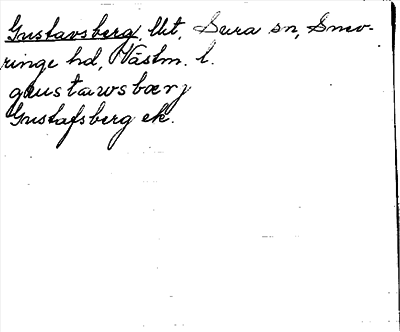 Gustavsberg, lht, Sura sn, Snev-
ringe hd, Västm. l.
gustawsbærj
Gustafsberg ek.